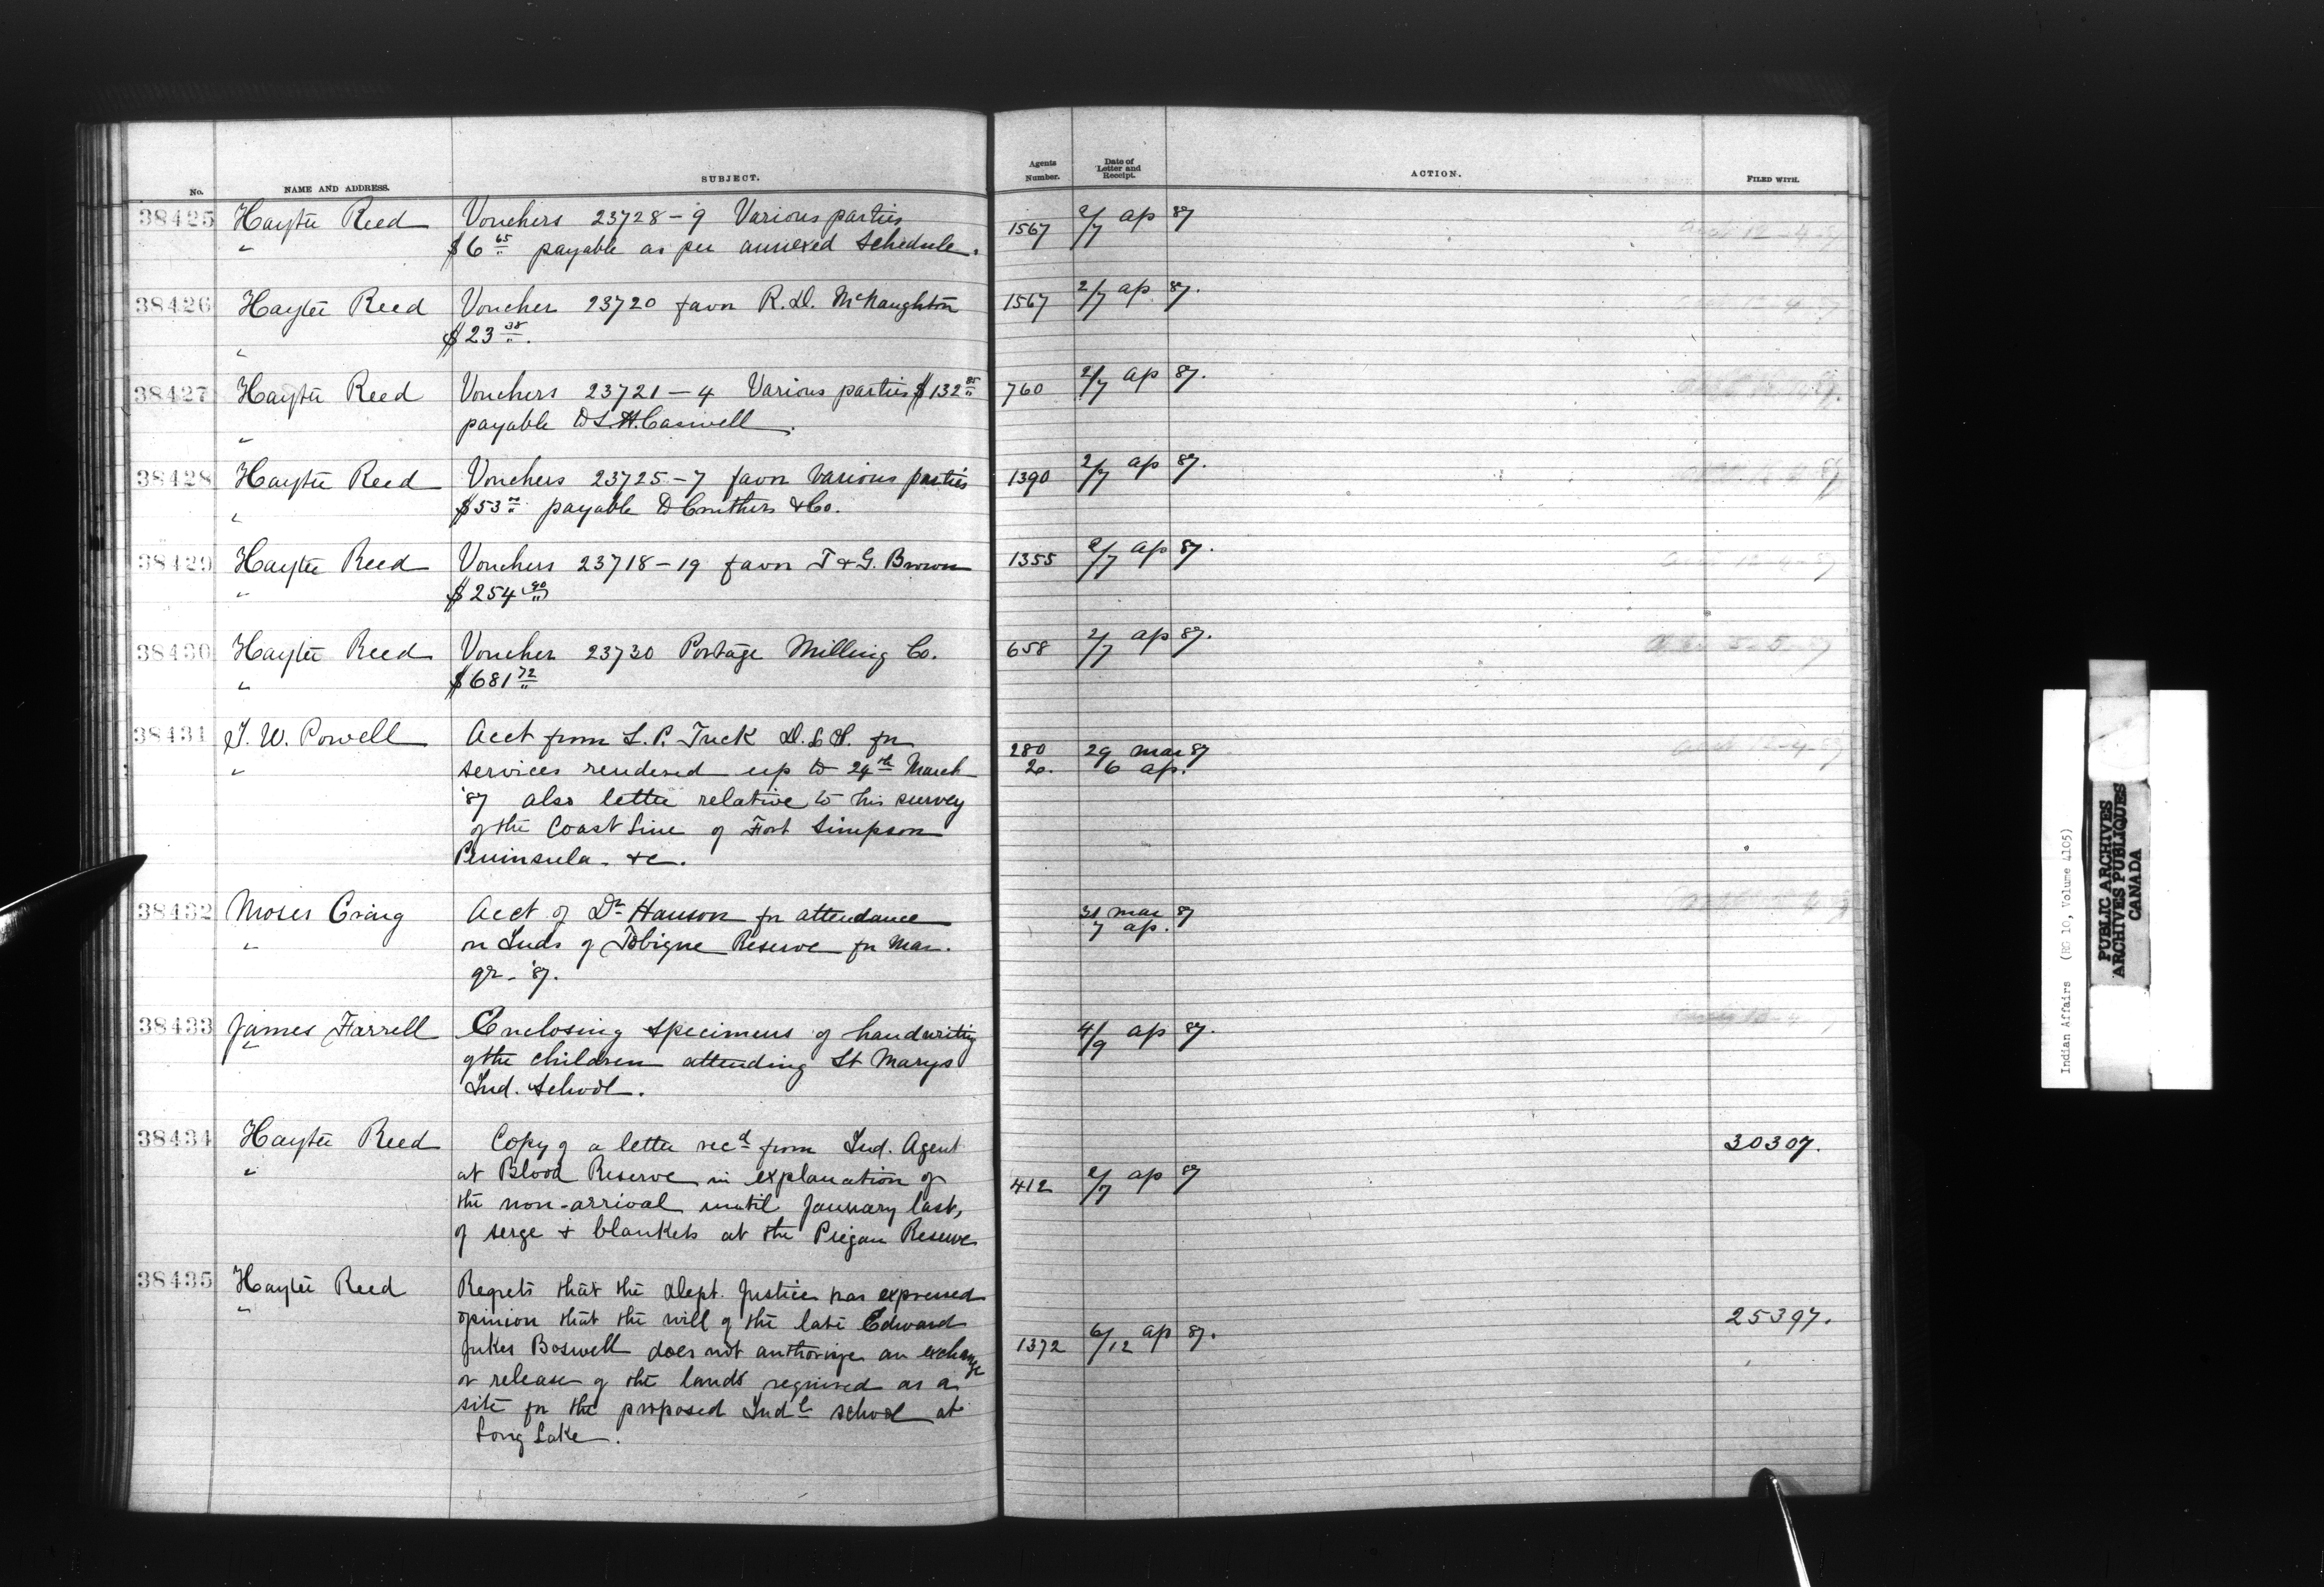 No. NAME AND ADDRESS. SUBJECT. Agents Number. Date of Letter and Receipt. ACTION. FILED WITH.
38425 Hayter Reed Vouchers 23728-9 Various parties 1567 2/7 ap 87
" $6 65 payable as per annexed Schedule.
38426 Hayter Reed Voucher 23720 favor R.D. McNaughton 1567 2/7 ap 87.
" $23 38.
38427 Hayter Reed Vouchers 23721-4 Various parties $132 85 760 2/7 ap 87.
" payable to L.W. Caswell.
38428 Hayter Reed Vouchers 23725-7 favor various parties 1390 2/7 ap 87.
" $53 payable D Cruthers & Co.
38429 Hayter Reed Vouchers 23718-19 favor T & G. Brown 1355 2/7 ap 87.
" $254 90
38430 Hayter Reed Voucher 23730 Portage Milling Co. 658 2/7 ap 87.
" $681 72
38431 I. W. Powell Acct from L. P. Tuck D. L. S. for 280 29 Mar 87
" services rendered up to 29th March 20. 6 ap.
'87 also letter relative to his survey
of the Coast Line of Fort Simpson
Peninsula. &c.
38432 Moses Craig Acct of Dr Hanson for attendance 31 Mar 87
" on Inds of Tobique Reserve for Mar. 7 ap.
qr- '87.
38433 James Farrell Enclosing specimens of handwriting 4/9 ap 87.
" of the children attending St Marys
Ind. School.
38434 Hayter Reed Copy of a letter recd from Ind. Agent 30307.
" at Blood Reserve in explanation of 412 2/7 ap 87
the non-arrival until January last,
of serge & blankets at the Piegan Reserve
38435 Hayter Reed Regrets that the Dept. Justice has expressed
" opinion that the will of the late Edward 25397.
Jukes Boswell does not authorize an exchange 1372 6/12 ap 87.
or release of the lands required as a
site for the proposed Indl school at
Long Lake.
Indian Affairs (RG 10, Volume 4105)
PUBLIC ARCHIVES
ARCHIVES PUBLIQUES
CANADA